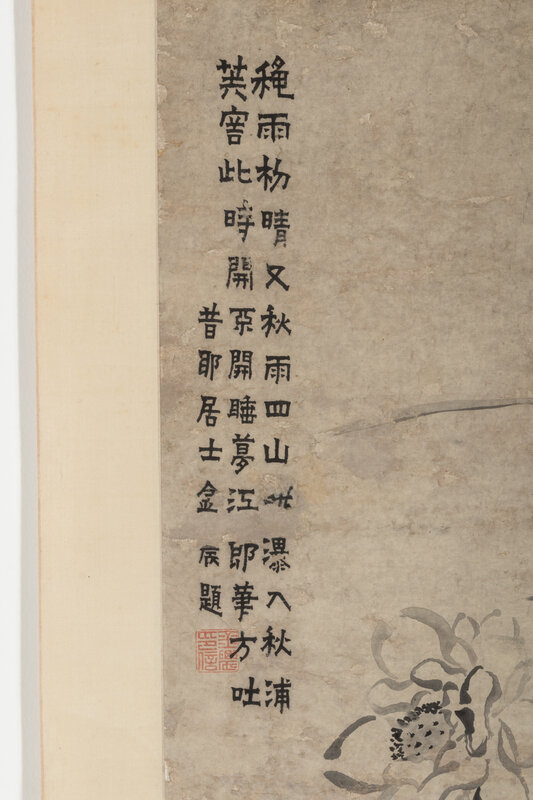 秋雨初晴又秋雨四山瀑入秋浦
芙容此時開不開睡夢江郎筆方吐
昔耶居士金農題
金農印信